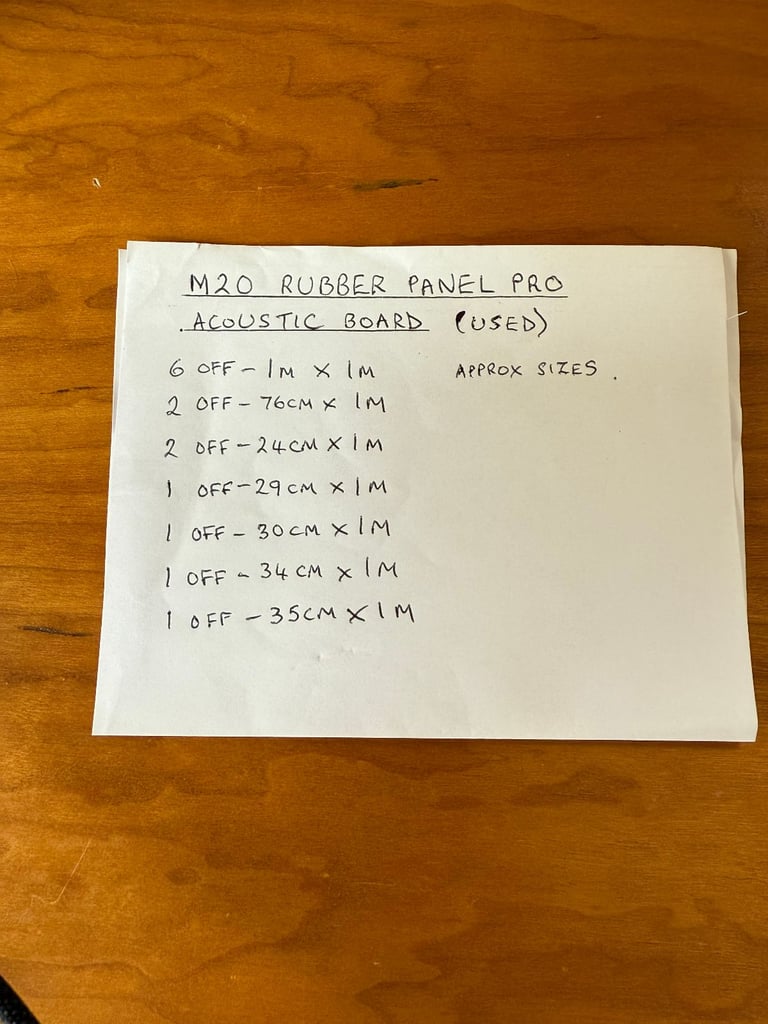 M20 RUBBER PANEL PRO
ACOUSTIC BOARD (USED)
6 OFF - 1M X 1M APPROX SIZES.
2 OFF - 76CM X 1M
2 OFF - 24CM X 1M
1 OFF - 29CM X 1M
1 OFF - 30CM X 1M
1 OFF - 34CM X 1M
1 OFF - 35CM X 1M